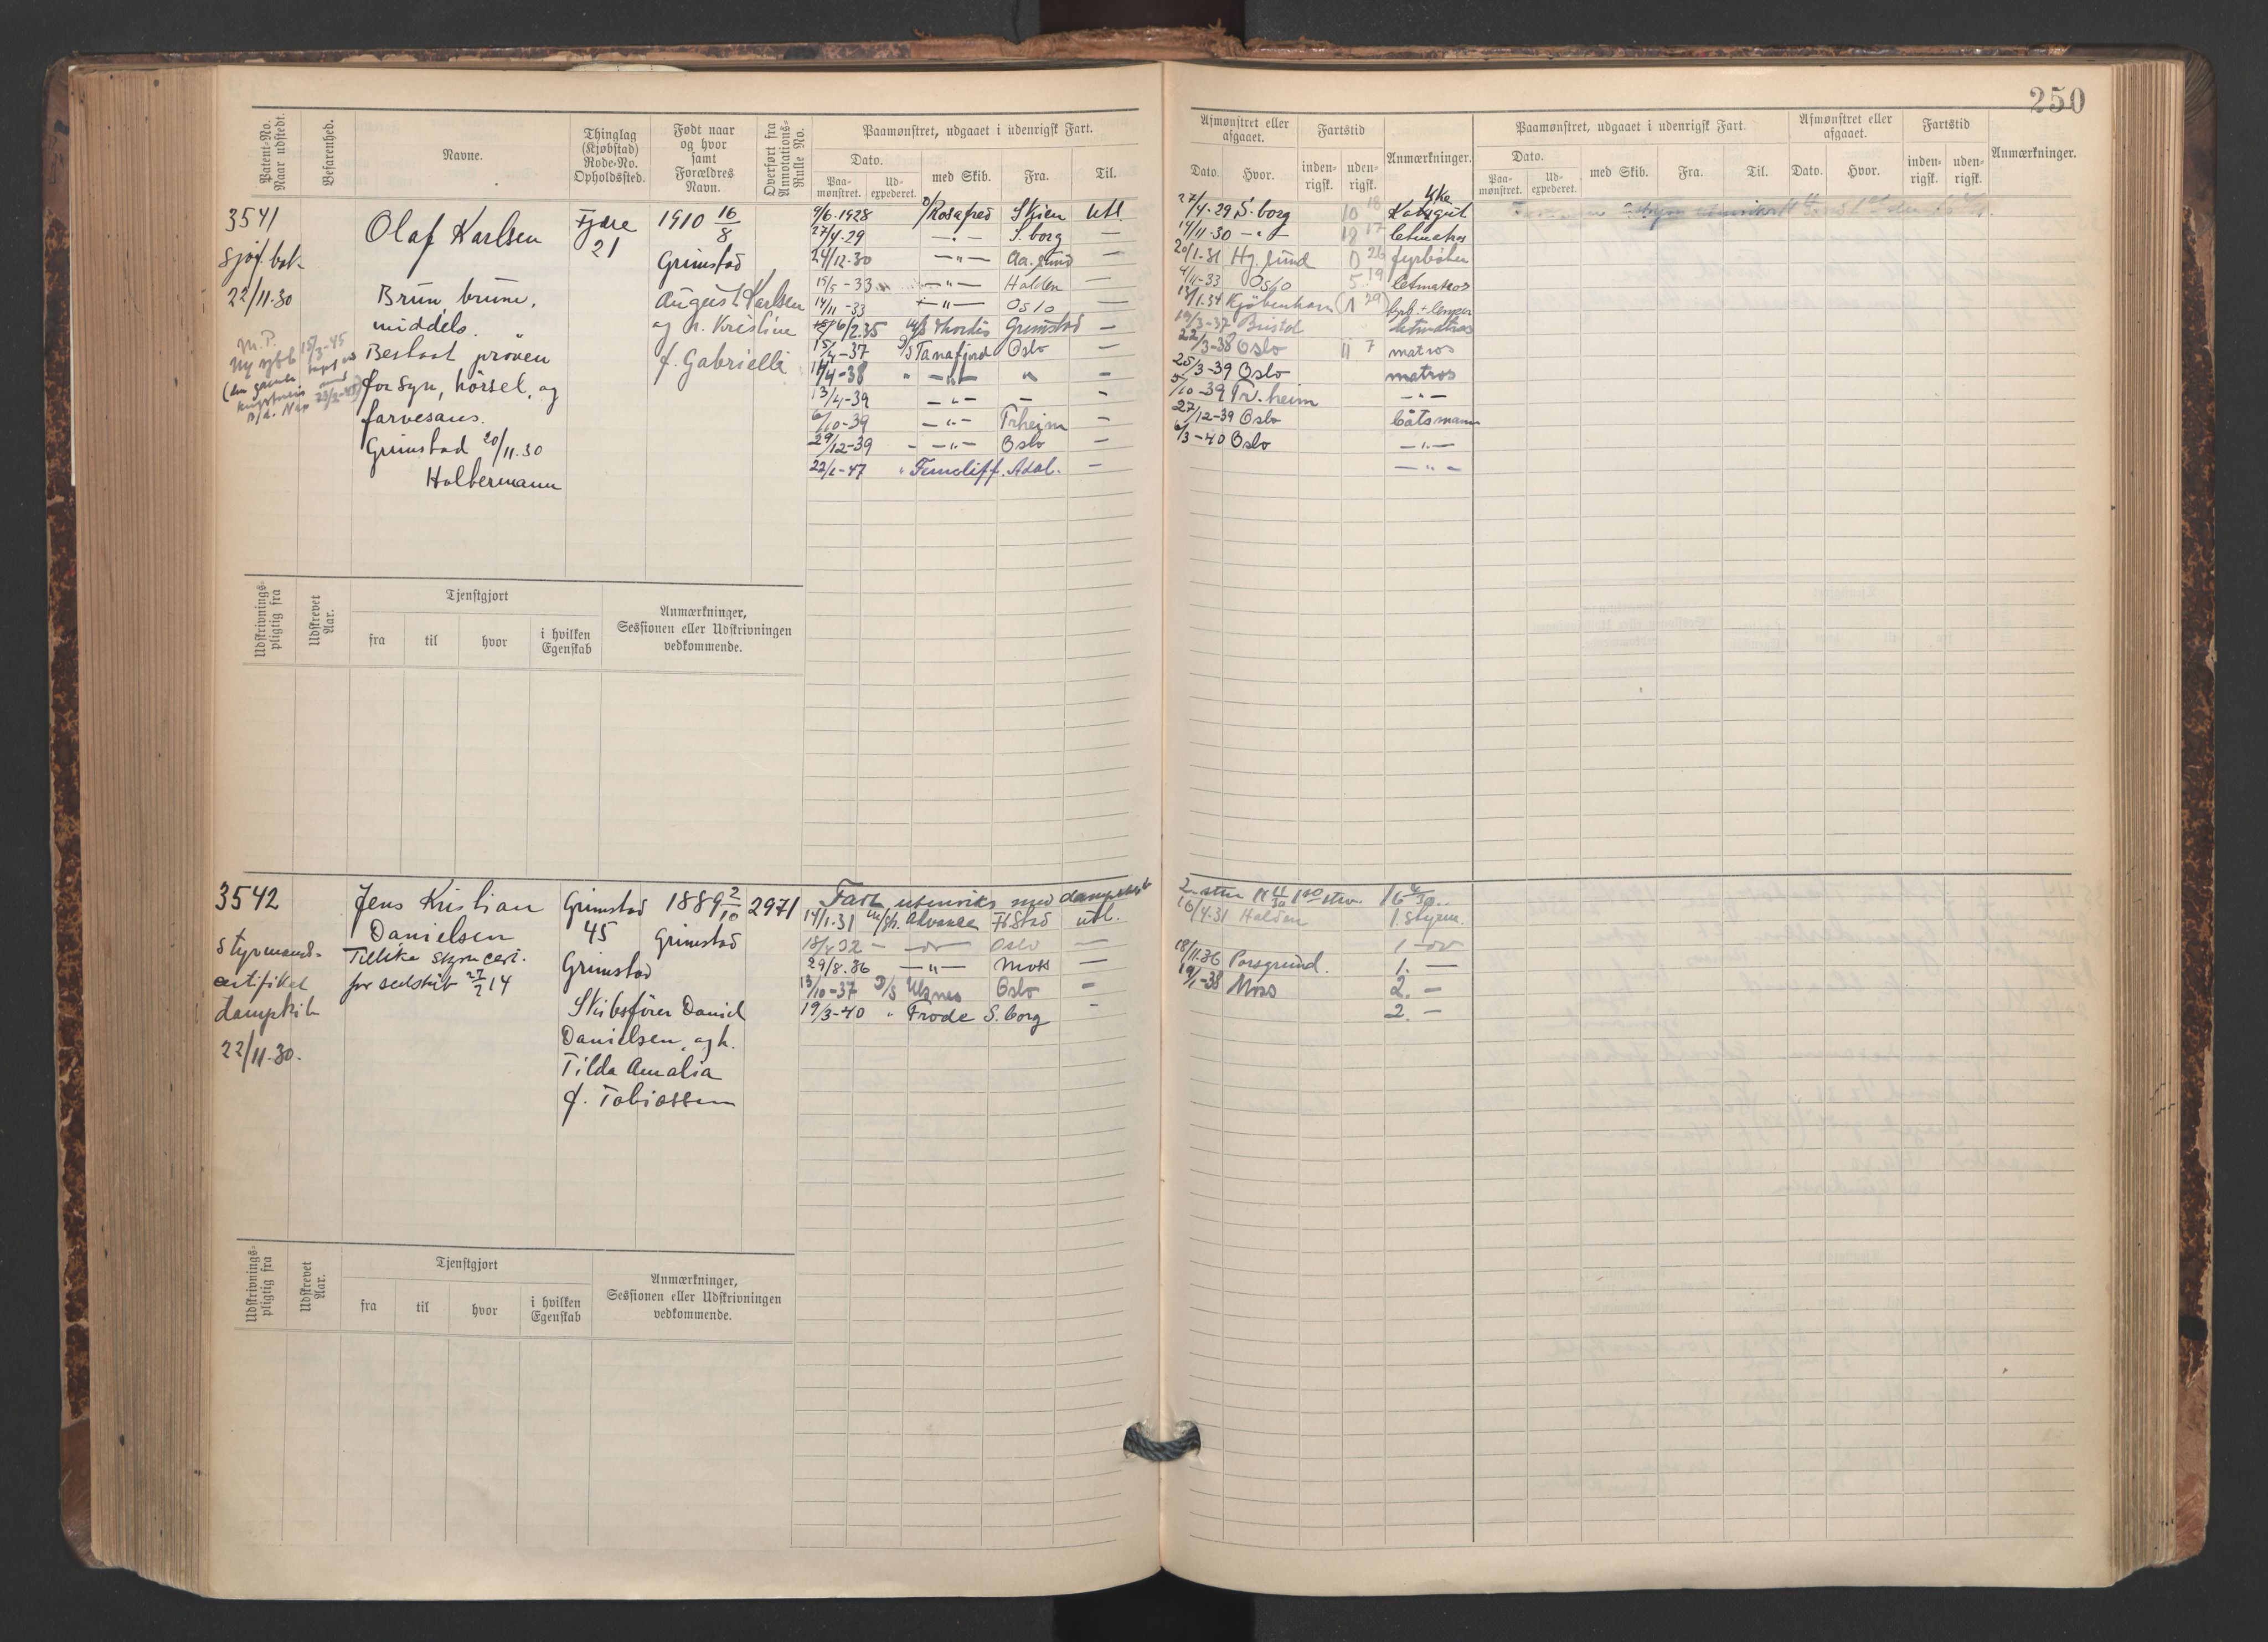 250
Patent-No.
Naar udstedt.
Befarenhed.
Navne.
Thinglag
(Kjøbstad)
Rode-No.
Opholdssted.
Født naar
og hvor
samt
Forældres
Navn.
Overført fra
Annotations-
Rulle No.
Paamønstret, udgaaet i udenrigsk Fart.
Dato.
Paa-
mønstret.
Ud-
expederet.
med Skib.
Fra.
Til.
Afmønstret eller
afgaaet.
Dato.
Hvor.
Fartstid
inden-
rigsk.
uden-
rigsk.
Anmærkninger.
Paamønstret, udgaaet i udenrigsk Fart.
Dato.
Paa-
mønstret.
Ud-
expederet.
med Skib.
Fra.
Til.
Afmønstret eller
afgaaet.
Dato.
Hvor.
Fartstid
inden-
rigsk.
uden-
rigsk.
Anmærkninger.
3541
Sjøf. bok
22/11-30
M.P.
Ny sjfb 15/3-45
Olaf Karlsen
Brun brune,
middels. "
Bestaat prøven
for syn, hörsel, og
farvesans.
Grimstad 20/11.30
Holbermann
Fjære
21
1910 16/8
Grimstad
August Karlsen
og h. Kristine
f. Gabrielli
9/6.1928 D/Rosafred Skien Utl.
27/4-29 —"— S.borg —
24/12.30 —"— Aa.sund —
15/5-33 —"— Halden —
14/11-33 —"— Oslo —
16/2.35 Thordis Grimstad —
15/4-37 D/S Tanafjord Oslo —
19/4-38 " —"— " —
13/4-39 —"— — -
6/10-39 —"— Trheim -
29/12-39 - —"— Oslo —
22/1-47 " Ferncliff Adal. —
27/4-29 S.borg 10 18 Kokkegut
14/11-30 —"— 18 17 letmatros
20/1-31 Hg.sund 1 26 fyrbøter
4/11-33 Oslo 5 19 letmatros
13/1.34 Kjøbenhavn (1 29) fyrb. + lemper
19/3-37 Bristol letmatros
22/3-38 Oslo 11 7 matros
25/3-39 Oslo matros
5/10-39 Tr.heim —"—
27/12-39 Oslo båtsmann
6/3-40 Oslo —"—
—"—
Udskrivnings-
pligtig fra
Udskrevet
Aar.
Tjenstgjort
fra
til
hvor
i hvilken
Egenskab
Anmærkninger,
Sessionen eller Udskrivningen
vedkommende.
3542
Styrmands-
certifikat
dampskib
22/11-30.
Jens Kristian
Danielsen
Tillike styrm cert.
for seilskib 27/2 14
Grimstad
45
1889 2/10
Grimstad
2971
Grimstad
Skibsfører Daniel
Danielsen, og h.
Tilda Amalia
f. Tobiassen
Fart utenriks med dampskib
14/1.31 m/sk. Advance F.Stad utl.
18/4 32 — —"— Oslo —
29/8.36 —"— Moss —
13/10-37 D/S Ulsnes Oslo -
19/3-40 " Frode S.borg -
16/4.31 Halden 1.styrm.
1 —"—
18/11.36 Porsgrund. 1. —
19/1-38 Moss 2. —
2. —
Udskrivnings-
pligtig fra
Udskrevet
Aar.
Tjenstgjort
fra
til
hvor
i hvilken
Egenskab
Anmærkninger,
Sessionen eller Udskrivningen
vedkommende.